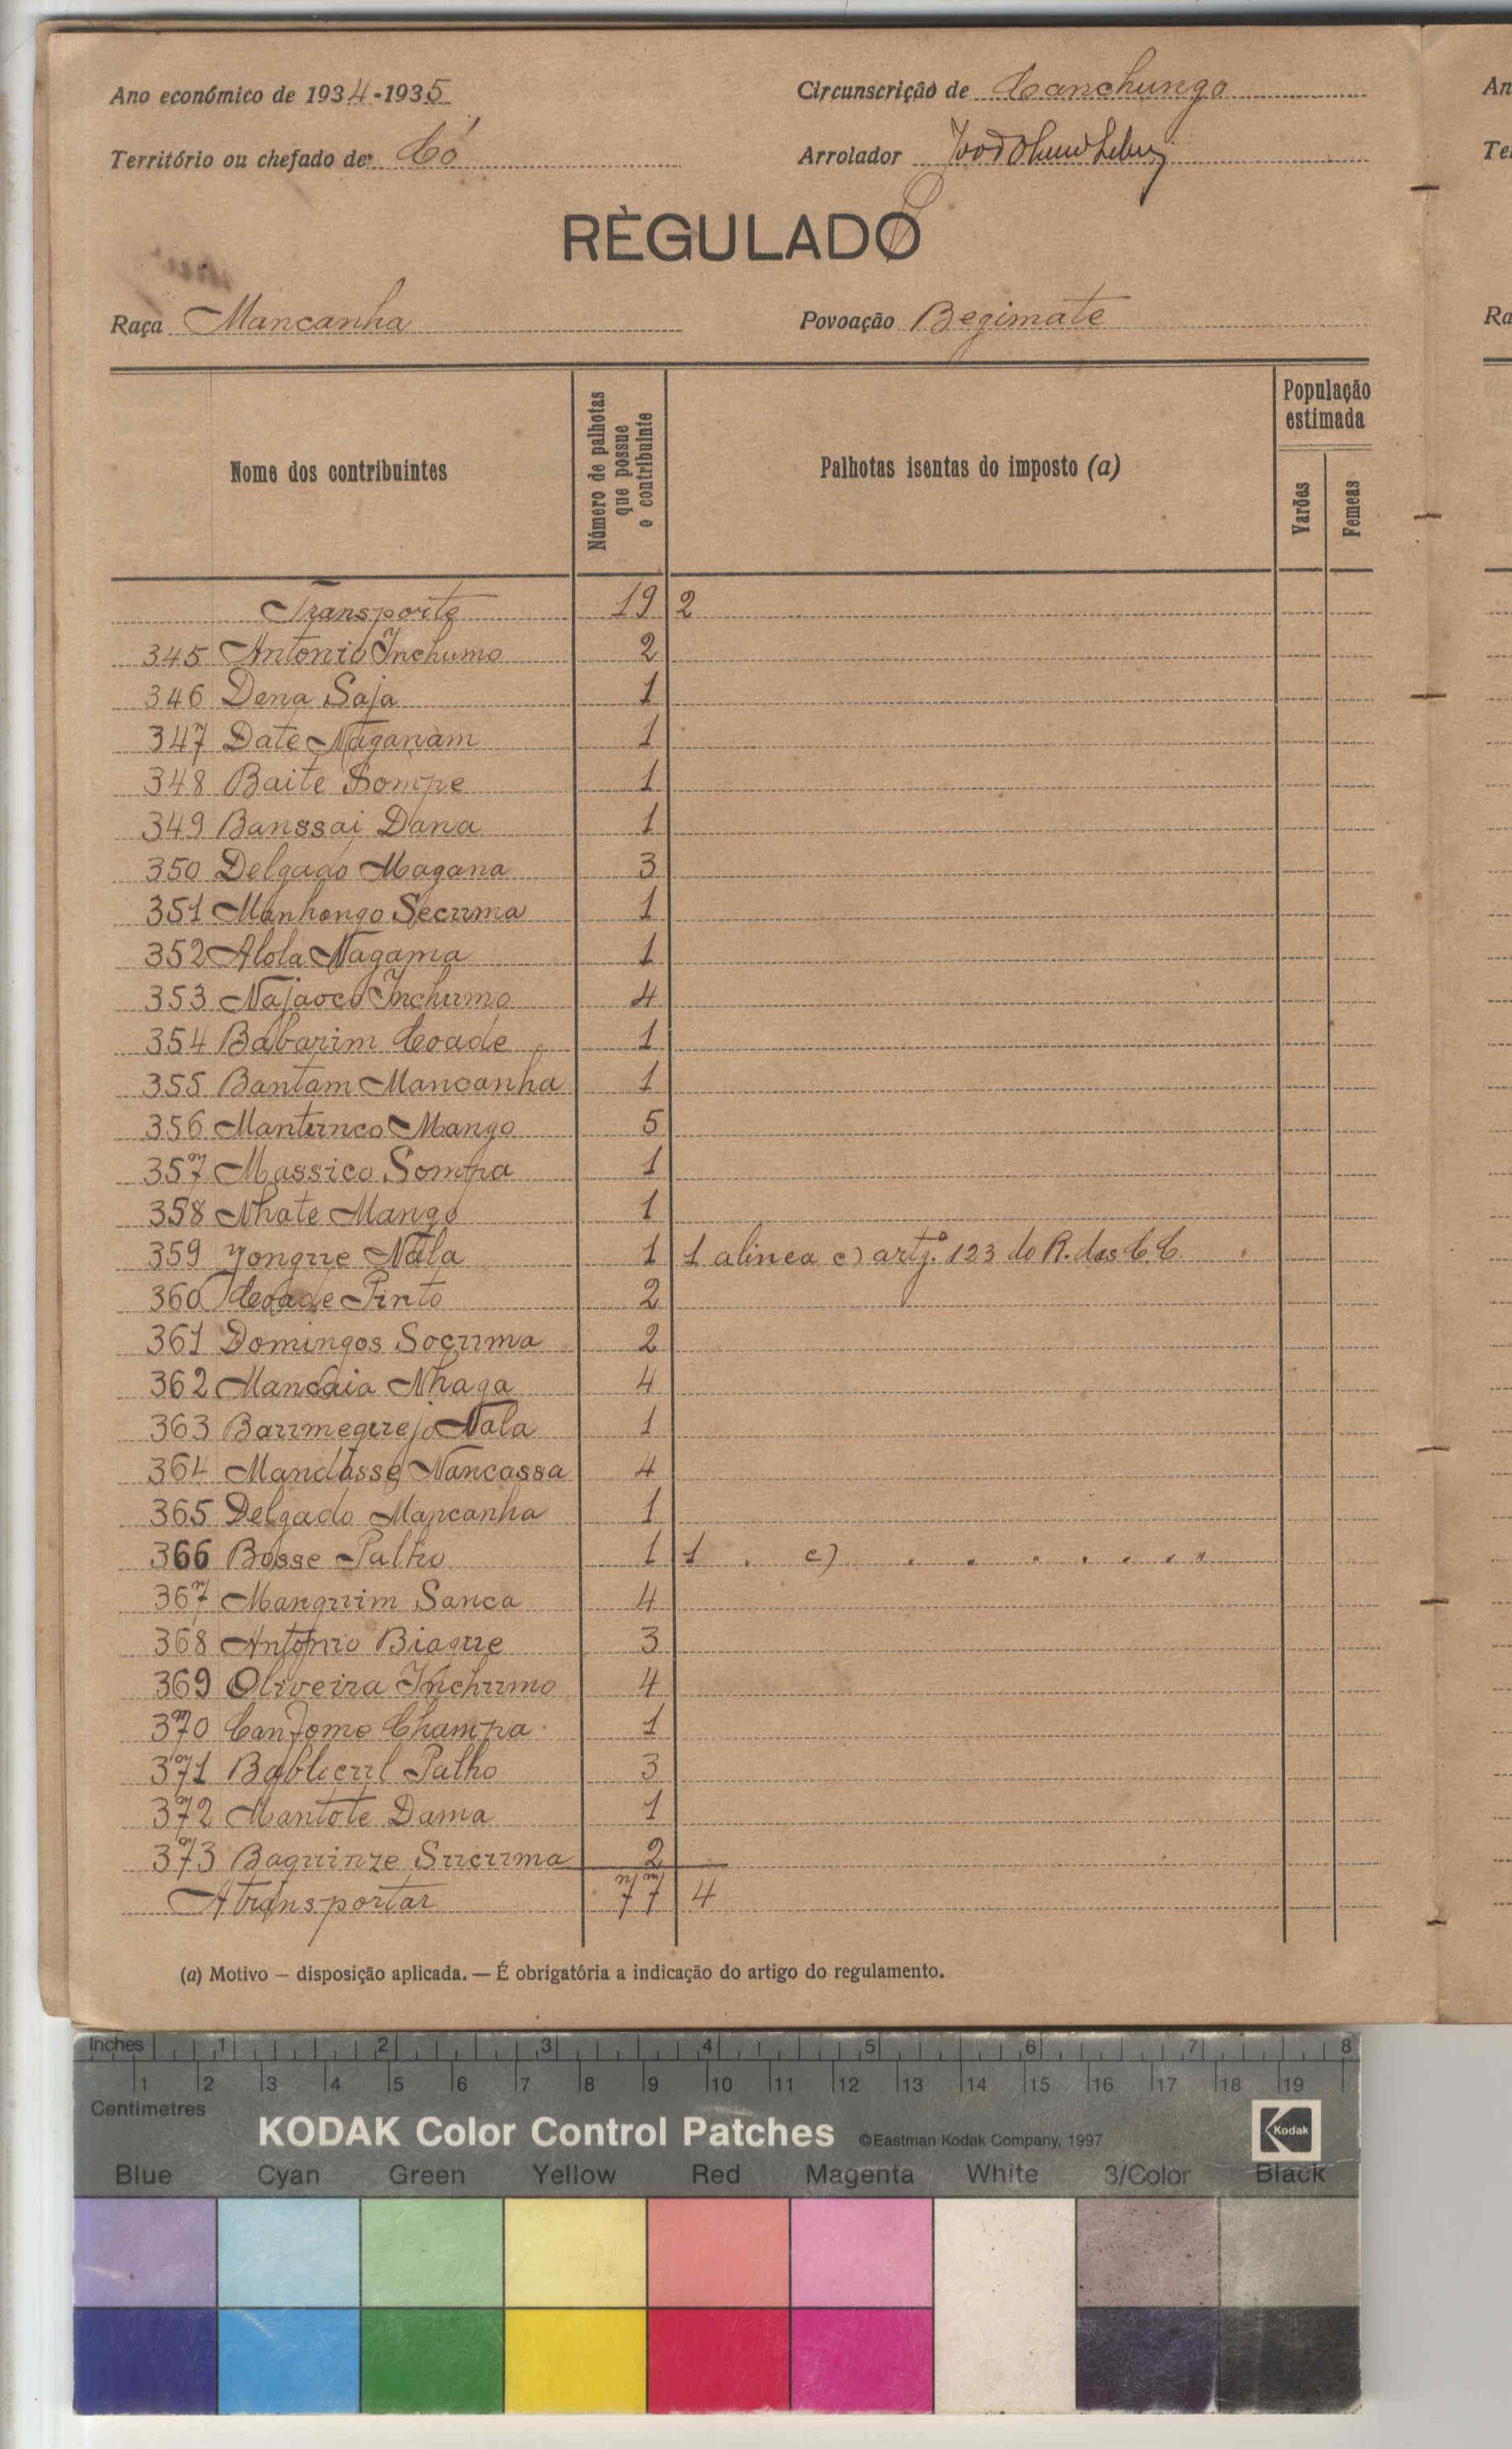 Ano económico de 1934-1935
Circunscrição de Canchungo
Território ou chefado de Có
Arrolador
RÈGULADO
Raça Mancanha
Povoação Begimate
Nome dos contribuintes
Número de palhotas que possue o contribuinte
Palhotas isentas do imposto (a)
População estimada
Varões
Femeas
Transporte 19 2
345 Antonio Inchumo 2
346 Dena Saja 1
347 Date Naganam 1
348 Baite Sompe 1
349 Banssai Dana 1
350 Delgado Magana 3
351 Manhongo Secuma 1
352 Alola Nagama 1
353 Najaoco Inchumo 4
354 Babarim Coade 1
355 Bantam Mancanha 1
356 Mantunco Mango 5
357 Massico Sompa 1
358 Nhate Mango 1
359 Yongue Nala 1 1 alinea c) artg.º 123 do R. das C C
360 Coade Pinto 2
361 Domingos Socuma 2
362 Mancaia Nhaga 4
363 Baumeguejo Nala 1
364 Mandasse Nancassa 4
365 Delgado Mancanha 1
366 Bosse Palho 1 1 . c) . . . . . . "
367 Manguim Sanca 4
368 Antonio Biague 3
369 Oliveira Inchumo 4
370 Canfome Champa 1
371 Bablicul Palho 3
372 Mantote Dama 1
373 Baquinze Sucuma 2
A transportar 77 4
(a) Motivo — disposição aplicada. — É obrigatória a indicação do artigo do regulamento.
Inches 1 2 3 4 5 6 7 8
1 2 3 4 5 6 7 8 9 10 11 12 13 14 15 16 17 18 19
Centimetres
KODAK Color Control Patches ©Eastman Kodak Company, 1997 Kodak
Blue Cyan Green Yellow Red Magenta White 3/Color Black